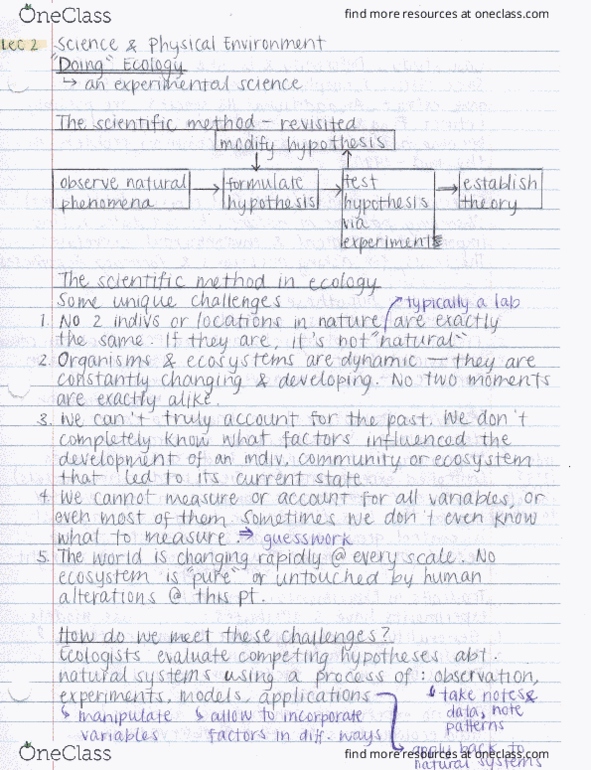 OneClass
find more resources at oneclass.com
Lec 2 Science & Physical Environment
"Doing" Ecology
↳ an experimental science
The scientific method - revisited
modify hypothesis
observe natural phenomena → formulate hypothesis → test hypothesis via experiments → establish theory
The scientific method in ecology
Some unique challenges
typically a lab
1. No 2 indivs or locations in nature are exactly
the same. If they are, it's not "natural"
2. Organisms & ecosystems are dynamic — they are
constantly changing & developing. No two moments
are exactly alike.
3. We can't truly account for the past. We don't
completely know what factors influenced the
development of an indiv, community or ecosystem
that led to its current state
4. We cannot measure or account for all variables, or
even most of them. Sometimes we don't even know
what to measure. ⇒ guesswork
5. The world is changing rapidly @ every scale. No
ecosystem is "pure" or untouched by human
alterations @ this pt.
How do we meet these challenges?
Ecologists evaluate competing hypotheses abt.
natural systems using a process of: observation,
experiments, models, applications
↳ take notes &
data, note
patterns
↳ manipulate
variables
↳ allow to incorporate
factors in diff. ways
apply back to
natural systems
OneClass
find more resources at oneclass.com